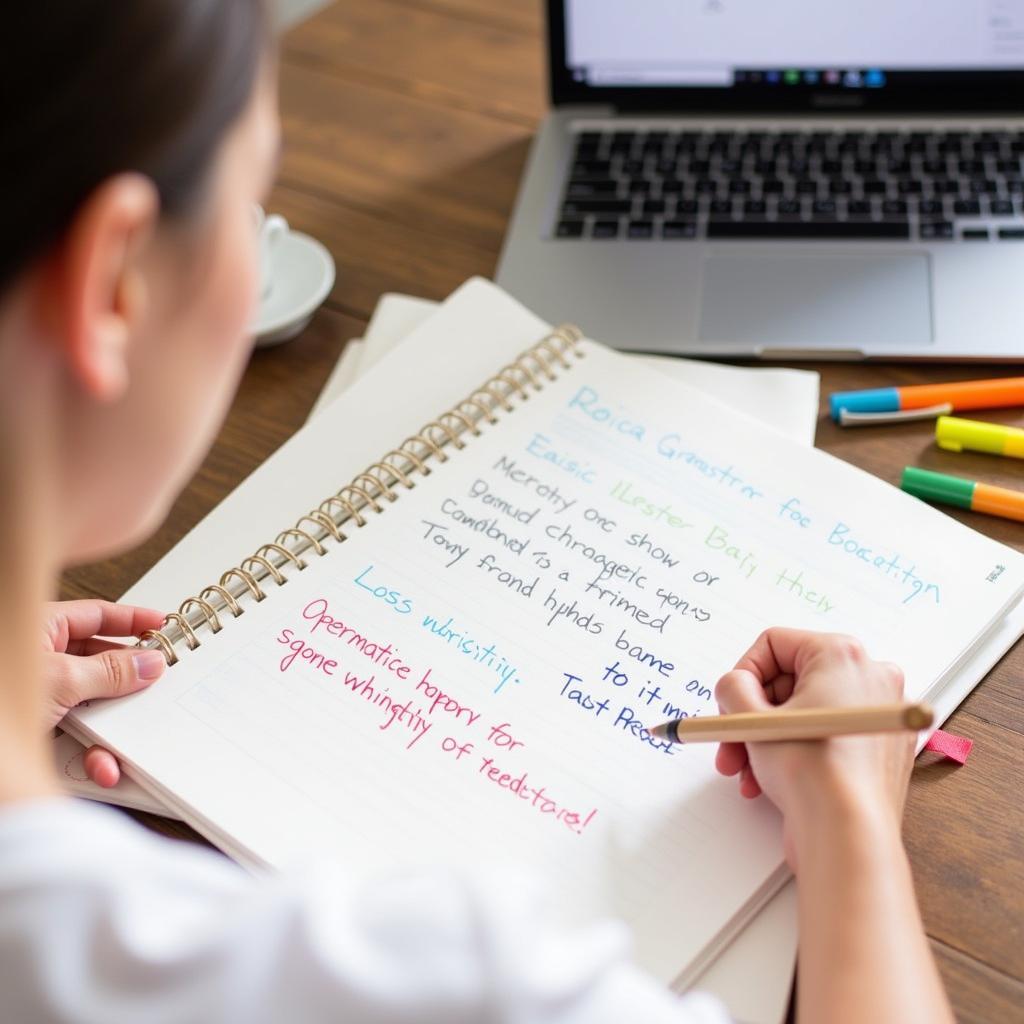 Roica Gramstrr for Bocatitgn
Eaisic Ilerster Baijy thery
Merothy orc show or
Demud chraggeic yonys
Cambberd is a frimed
Tovy frand hphds bame on
to it
Tast
Loss whrisitiy.
Opermatice happry for
sgone whingtiy of teedctare!